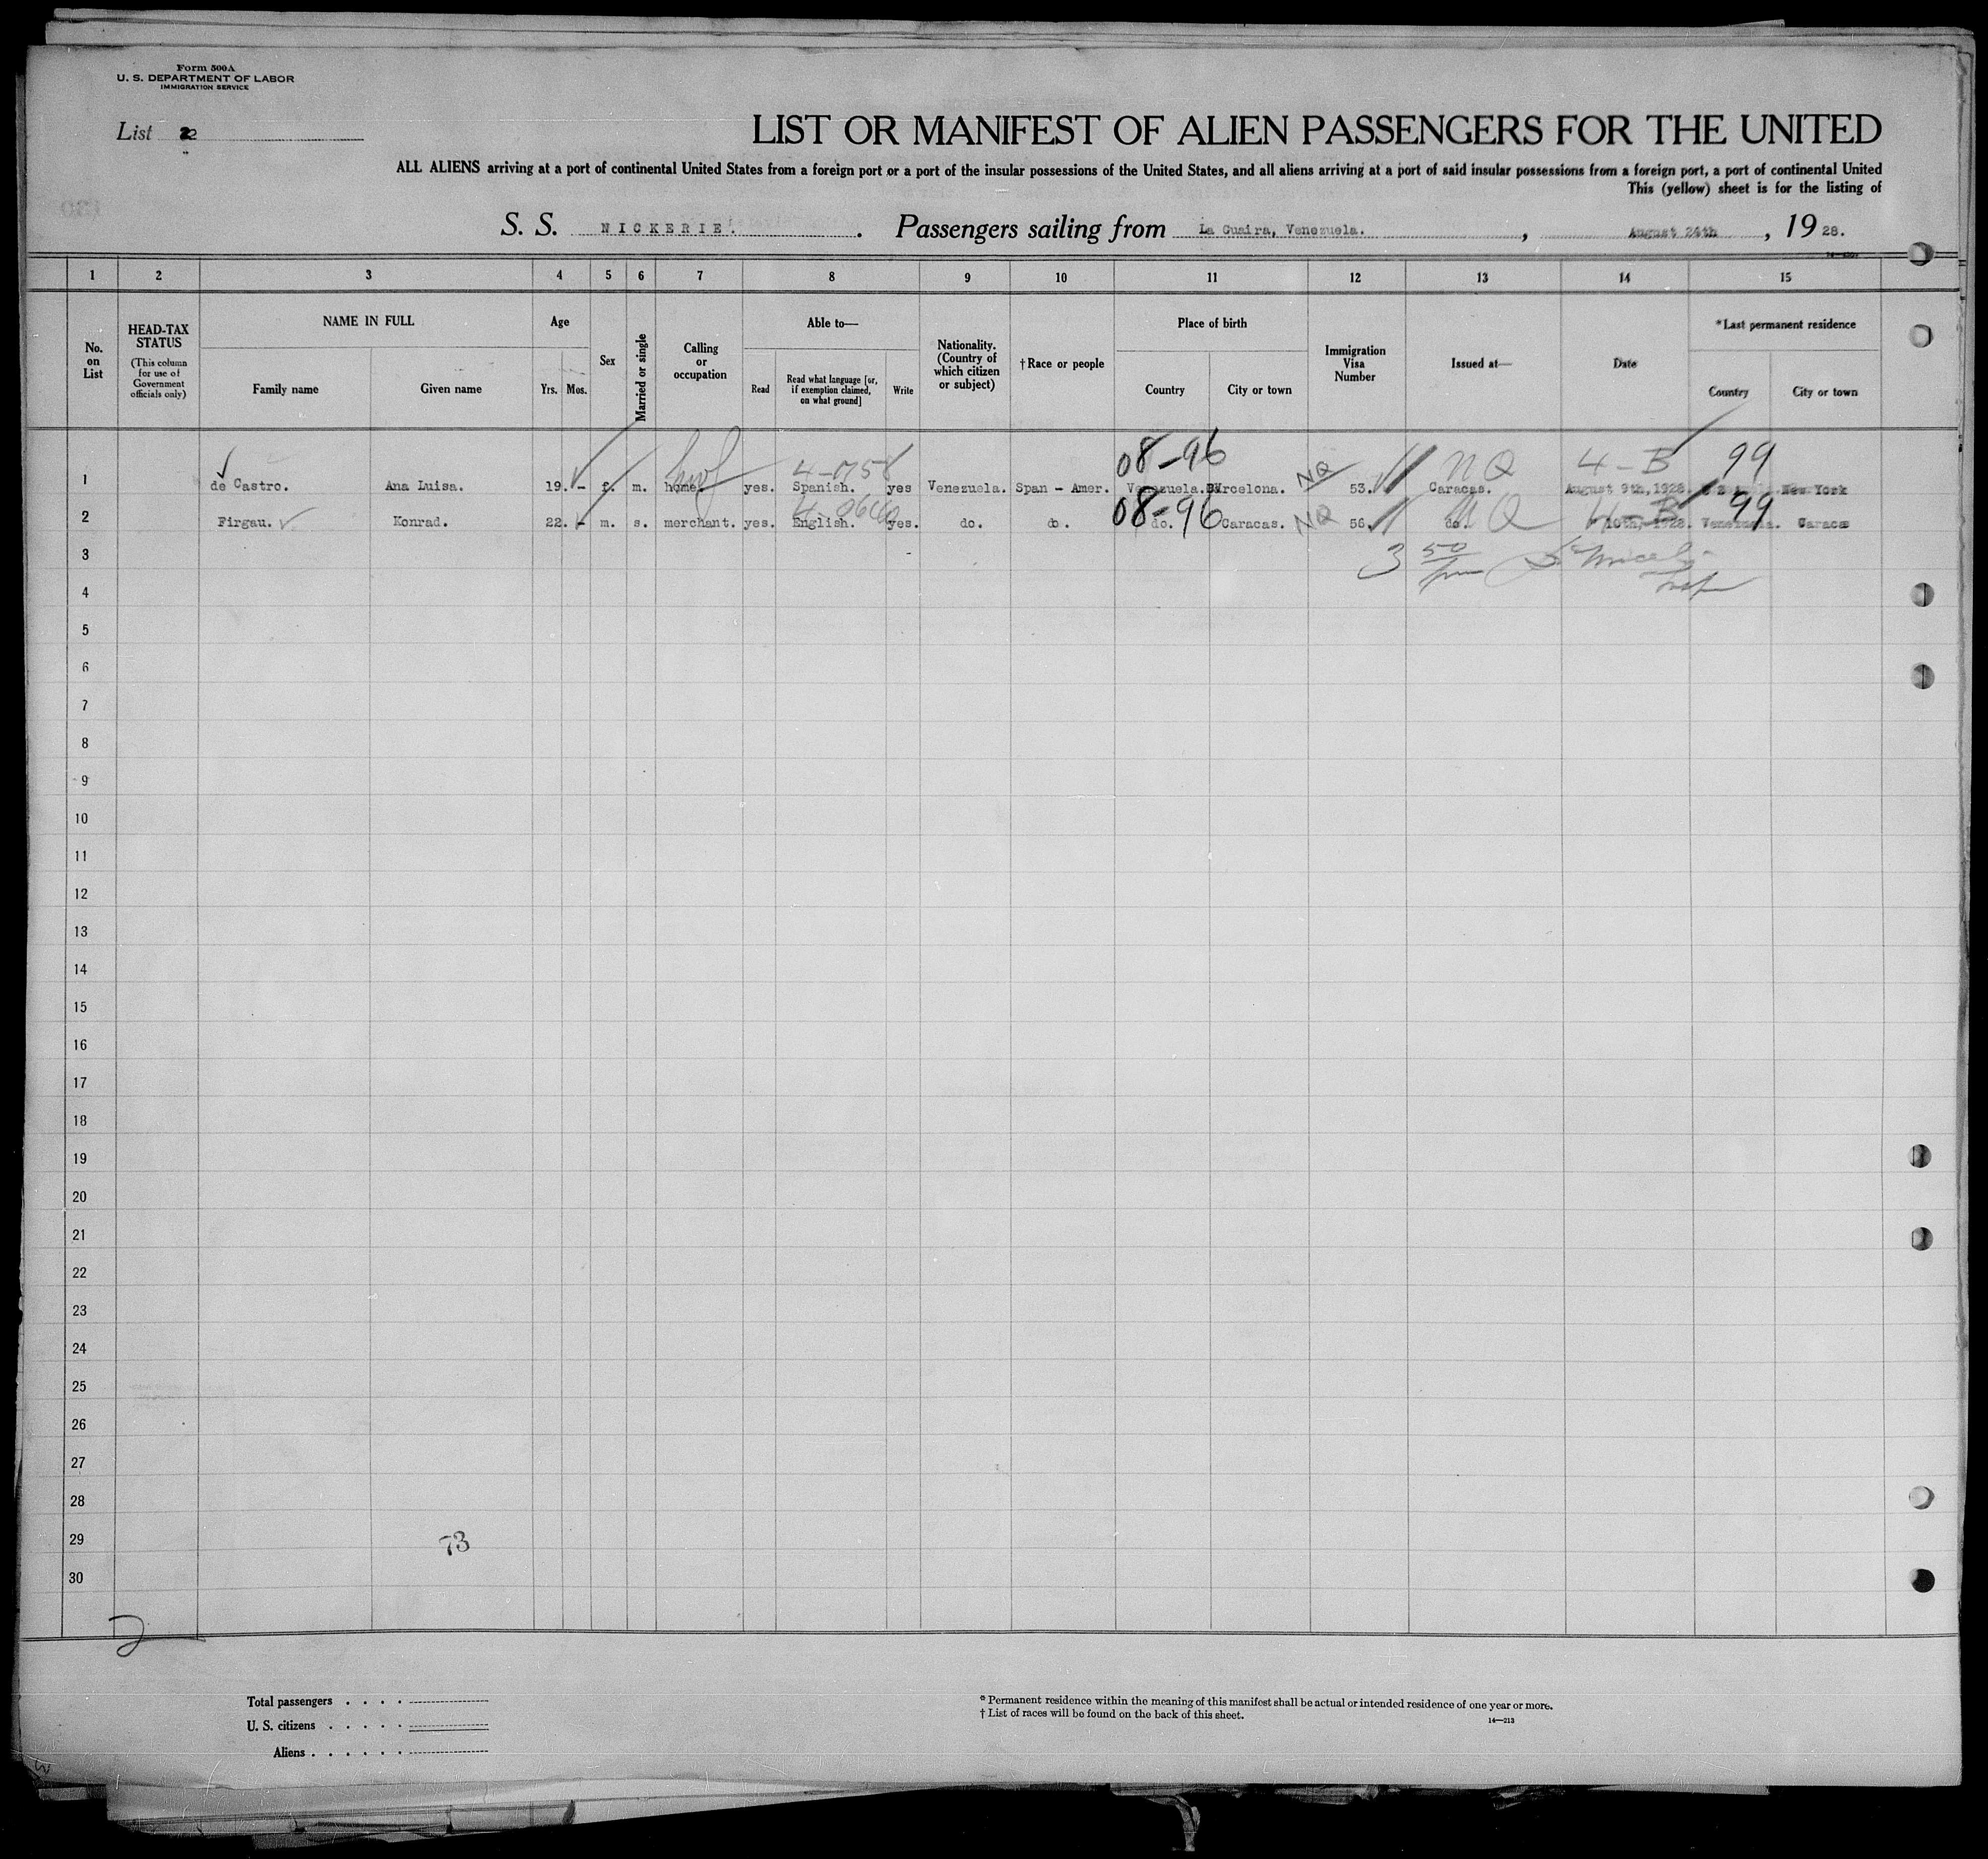 Form 500A
U. S. DEPARTMENT OF LABOR
IMMIGRATION SERVICE
List 2
LIST OR MANIFEST OF ALIEN PASSENGERS FOR THE UNITED
ALL ALIENS arriving at a port of continental United States from a foreign port or a port of the insular possessions of the United States, and all aliens arriving at a port of said insular possessions from a foreign port, a port of continental United
This (yellow) sheet is for the listing of
S. S. NICKERIE. Passengers sailing from La Guaira, Venezuela. , August 24th , 19 28.
1 2 3 4 5 6 7 8 9 10 11 12 13 14 15
No. on List
HEAD-TAX STATUS (This column for use of Government officials only)
NAME IN FULL
Family name Given name
Age
Yrs. Mos.
Sex
Married or single
Calling or occupation
Able to—
Read
Read what language [or, if exemption claimed, on what ground]
Write
Nationality. (Country of which citizen or subject)
†Race or people
Place of birth
Country City or town
Immigration Visa Number
Issued at—
Date
*Last permanent residence
Country City or town
08-96 NQ 4-B 99
1 de Castro. Ana Luisa. 19. - f. m. home. yes. Spanish. yes Venezuela. Span - Amer. Venezuela. Barcelona. NQ 53. Caracas. August 9th, 1928. New York
08-96 NQ 4-B 99
2 Firgau. Konrad. 22. - m. s. merchant. yes. English. yes. do. do. do. Caracas. NQ 56. do. 10th, 1928. Venezuela. Caracas
3 3 50
4
5
6
7
8
9
10
11
12
13
14
15
16
17
18
19
20
21
22
23
24
25
26
27
28
29 73
30
2
Total passengers . . . .
U. S. citizens . . . . .
Aliens . . . . . .
* Permanent residence within the meaning of this manifest shall be actual or intended residence of one year or more.
† List of races will be found on the back of this sheet.
14—213